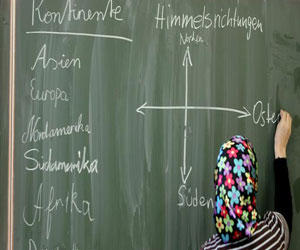 Kontinente
Himmelsrichtungen
Norden
Asien
Europa
Nordamerika
Südamerika
Afrika
Oste
Süden